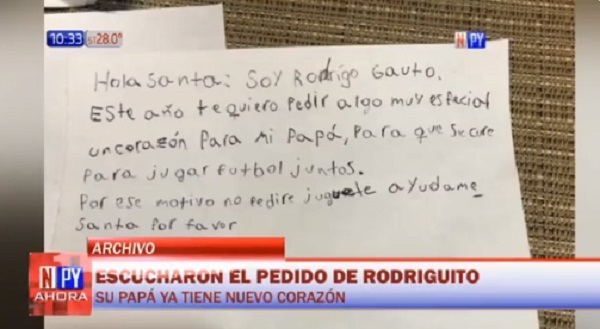 10:33 ST 28.0°
NPY
Hola Santa: Soy Rodrigo Gauto.
Este año te quiero pedir algo muy especial
un corazón para mi papá, para que se cure
para jugar futbol juntos.
Por ese motivo no pedire juguete ayudame
Santa por favor
ARCHIVO
ESCUCHARON EL PEDIDO DE RODRIGUITO
NPY
AHORA
SU PAPÁ YA TIENE NUEVO CORAZÓN